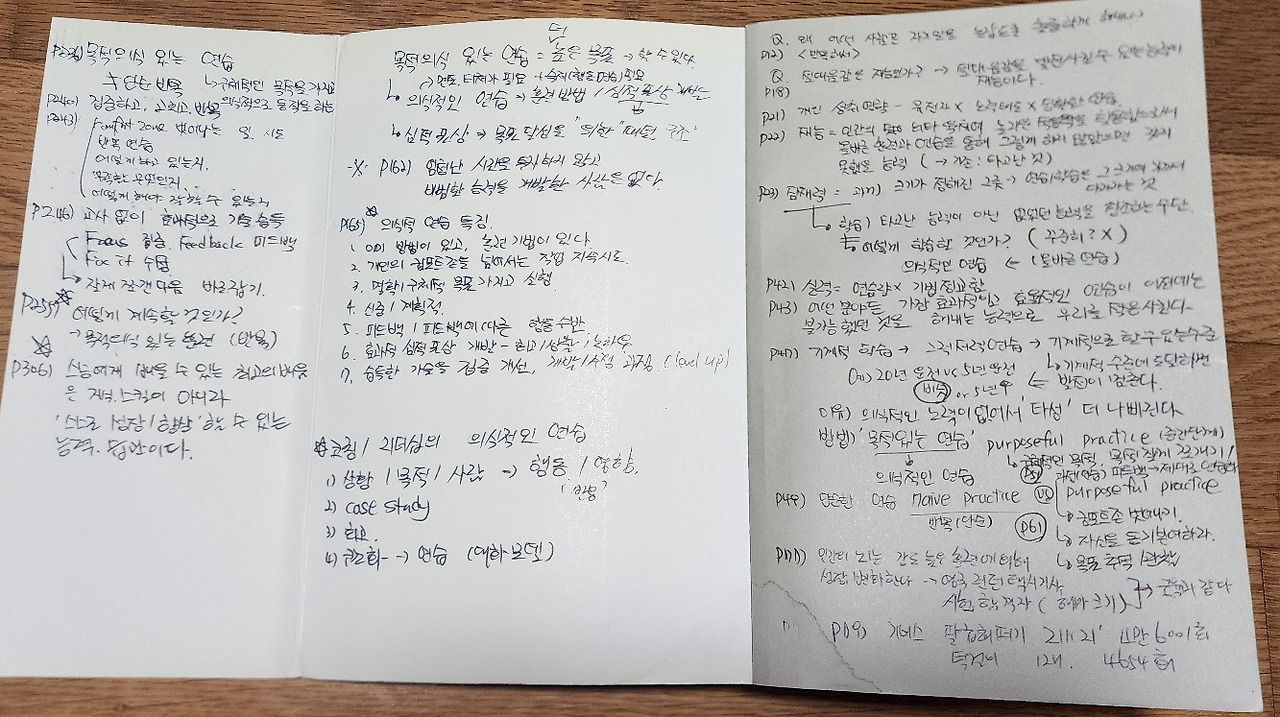 목적의식 있는 연습
≠ 단순 반복 ↳ 구체적인 목표를 가지고
P240) 집중하고, 고의고 반복 의식적으로 동작을 하는
P243) comfort zone 벗어나는 일 시도
반복 연습
어떻게 하고 있는지.
부족한 무엇인지
어떻게 해야 잘 할 수 있는지
P246) 교사 없이 효과적으로 기술 습득
Focus 집중. Feedback 피드백
Fix it 수정
↳ 잘게 쪼갠 다음 바로잡기.
P255) 어떻게 계속할 것인가?
→ 목적의식 있는 훈련 (반복)
P306) 스승에게 배울 수 있는 최고의 배움
은 지식, 스킬이 아니라
'스스로 성장/향상' 할 수 있는
능력. 방법이다.
더
목적의식 있는 연습 = 높은 목표 → 할 수 있다.
↳ 의식적인 연습 → 훈련 방법 / 심적 표상
↳ 심적 표상 → 목표 달성을 "위한"
※ P162) 엄청난 시간을 투자하지 않고
비범한 능력을 개발한 사람은 없다.
P165) ☆ 의식적 연습 특징.
1. 이미 방법이 있고, 훈련 기법이 있다.
2. 개인의 컴포트존을 넘어서는 작업 지속 시도.
3. 명확/구체적 목표 가지고 실행
4. 신중/계획적.
5. 피드백/피드백에 따른 행동 수반
6. 효과적 심적 표상 개발 -
7. 습득한 기술을 집중 개선, 개발/수정 과정. (level up)
☆ 코칭/리더십의 의식적인 연습
1) 상황/목적/사람 → 행동/영향.
'반응'
2) case study
3) 회고.
4) 구조화 → 연습 (대화 모델)
Q. 왜 어떤 사람은 자기 일을 놀랍도록 훌륭하게 해내나?
P12) <반복해서>
Q. 절대음감은 재능인가? → 절대음감을 발전시킬 수 있는 능력이
P18) 재능이다.
P21) 개인 성취 역량 = 유전자 × 노력 정도 × 올바른 연습.
P22) 재능 =
올바른 훈련과 연습을 통해 그렇게 하지 않았으면 갖지
못했을 능력 (→ 기존: 타고난 것)
P23) 잠재력 = 크기가 정해진 그릇 → 연습/학습은 그 크기에
↳ 학습) 타고난 능력이 아닌 없었던 능력을 창조하는 수단.
≒ 어떻게 학습할 것인가? (꾸준히? X)
의식적인 연습 ← (올바른 연습)
P42) 실력 = 연습량 × 기법 정교함
P43) 어떤 분야든 가장 효과적이고 효율적인 연습이 이전에는
불가능했던 것을 해내는 능력으로 우리를 적응시킨다.
P47) 기계적 학습 → 그럭저럭 연습 → 기계적으로 할 수 있는 수준
예) 20년 운전 vs 5년 운전 ↳ 기계적 수준에 도달하면
비슷 or 5년 우 ← 발전이 멈춘다.
이유) 의식적인 노력이 없어서 '다성' 더 나빠진다
방법) '목적 있는 연습 purposeful practice (중간단계)
↳ 구체적인 목적, 목적 잘게 쪼개기/
의식적인 연습
P49) 단순한 연습 naive practice vs purposeful practice
반복(단순) P61
↳ 컴포트존 벗어나기.
↳ 자신을 동기부여하라.
↳ 목표 추적/관찰
인간의 뇌는 강도 높은 훈련에 의해
성장 변화한다 → 영국 런던 택시기사,
시험 합격자 (해마 크기) } → 근육과 같다
기네스 팔굽혀펴기 21시21' 4만 6001회
턱걸이 12시. 4654회